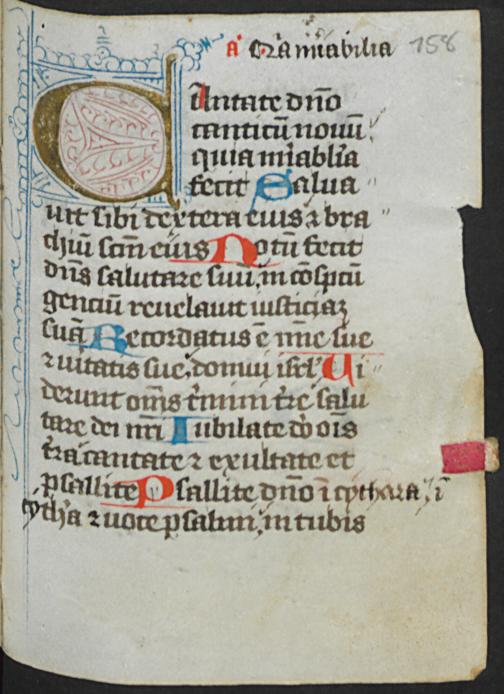 a Q̄ra mirabilia 158
Cāntate dn̄o
canticū nouū
quia mirabl'ia
fecit Salua
uit sibi dextera eius ⁊ bra
chiū scm̄ eius Notū fecit
dn̄s salutare suū, in cōspctū
genciū reuelauit iusticiaꝫ
suā Recordatus ē mīe sue
⁊ uitatis sue, domui isrl' Ui
derunt om̄s t'mini tr̄e salu
tare dei nr̄i Iubilate do ois
tr̄a cantate ⁊ exultate et
psallite Psallite dn̄o ī cythara, ī
cyth'a ⁊ uoce psalmi, in tubis